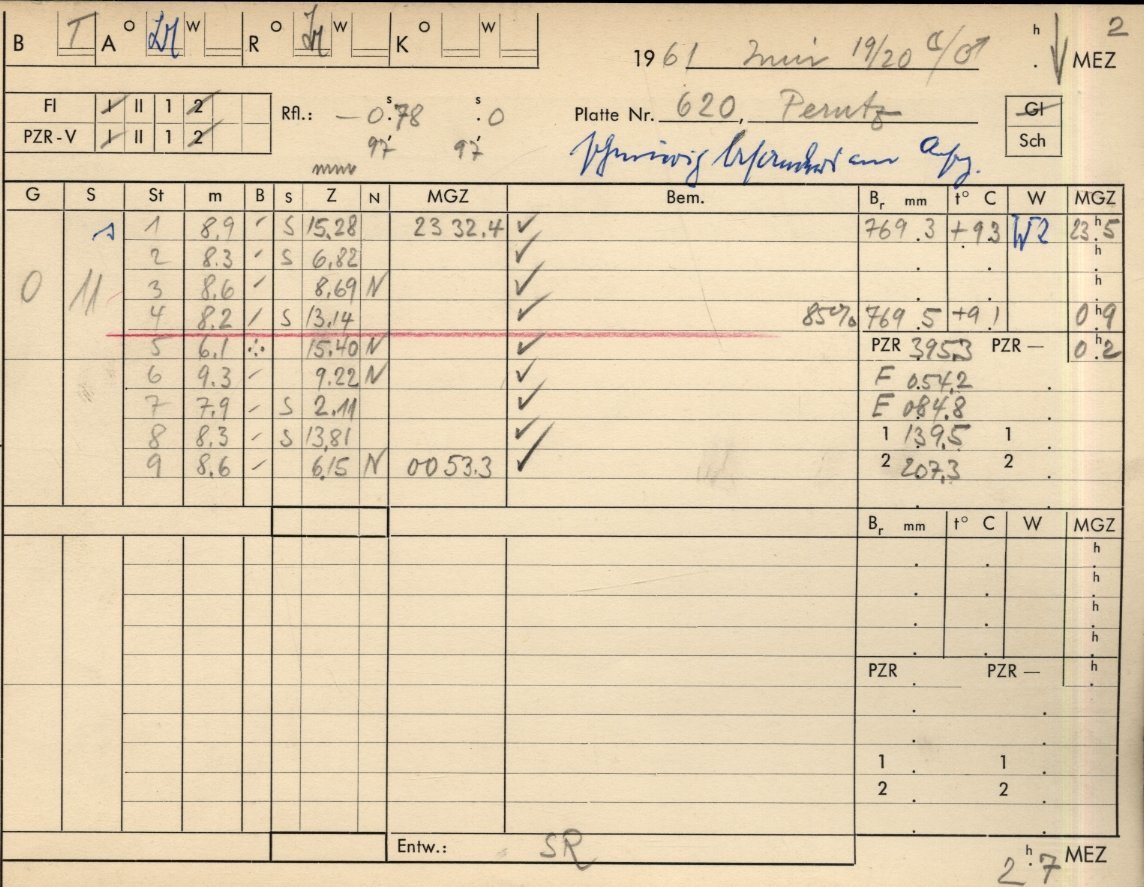 B T A O W R O W K O W h 2
1961 Juni 19/20 MEZ
Fl I II 1 2 Rfl.: — 0.s78 s.0 Platte Nr. 620, Perutz Gl
PZR-V I II 1 2 97' 97' Sch
mmv am
G S St m B S Z N MGZ Bem. Br mm t° C W MGZ
0 11 s 1 8.9 S 15,28 23 32.4 ✓ 769.3 +9.3 W2 23h.5
2 8.3 S 6,82 ✓ h
3 8.6 8,69 N ✓ h
4 8.2 S 13,14 ✓ 85% 769.5 +9.1 0h.9
5 6.1 15,40 N ✓ PZR 395.3 PZR — 0h.2
6 9.3 9,22 N ✓ F 054.2
7 7.9 S 2,11 ✓ E 084.8
8 8.3 S 13,81 ✓ 1 139.5 1
9 8.6 6,15 N 00 53.3 ✓ 2 207.3 2
Br mm t° C W MGZ
h
h
h
h
PZR PZR — h
1 1
2 2
Entw.: SR 2h.7 MEZ